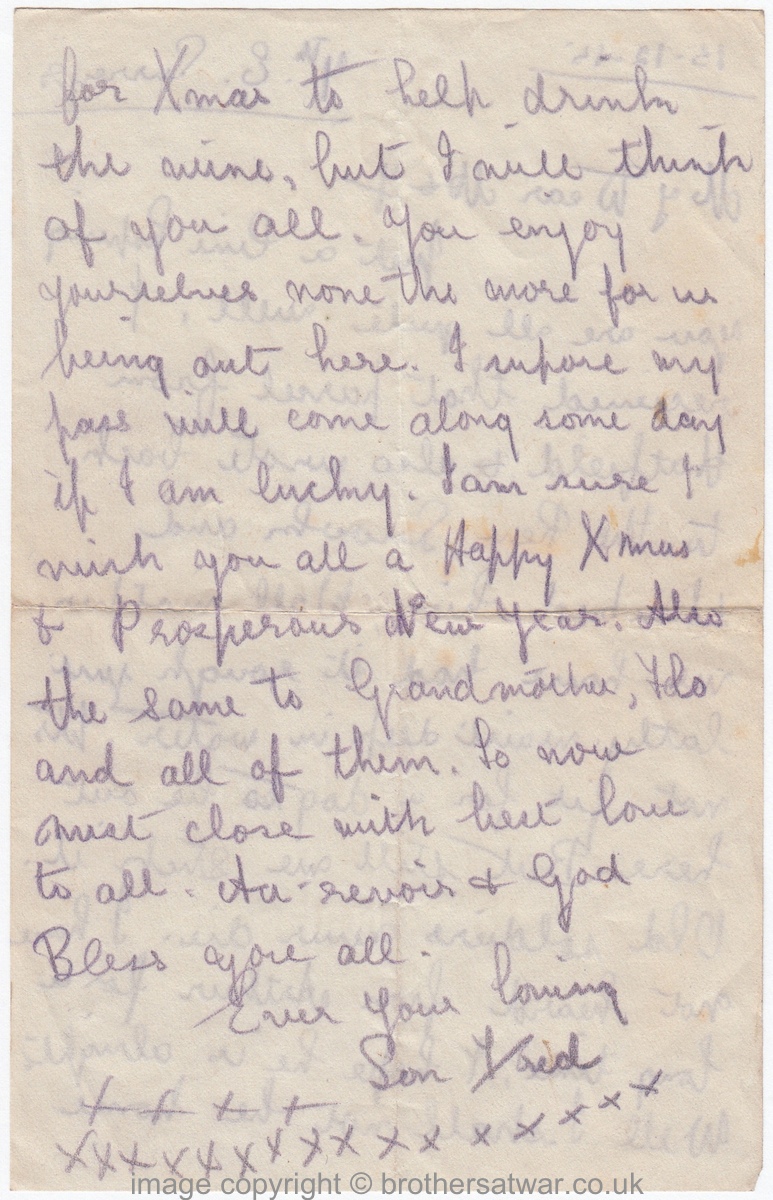 for Xmas to help drink
the wine, but I will think
of you all. You enjoy
yourselves none the more for us
being out here. I supose my
pass will come along some day
if I am lucky. I am sure I
wish you all a Happy Xmas
& Prosperous New Year. Also
the same to Grandmother,
and all of them. So now
must close with best love
to all. Au-revoir & God
Bless you all.
Ever your loving
Son
x x x x
x x x x x x x x x x x x x x x x x
image copyright © brothersatwar.co.uk